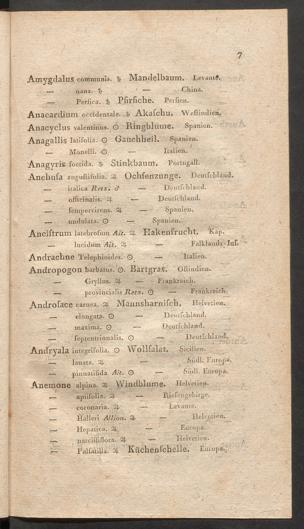 7
Amygdalus communis. ♄ Mandelbaum. Levante.
— nana. ♄ — China.
— Persica. ♄ Pfirsche. Persien.
Anacardium occidentale. ♄ Akaschu. Westindien.
Anacyclus valentinus. ☉ Ringblume. Spanien.
Anagallis latifolia. ☉ Gauchheil. Spanien.
— Monelli. ☉ — Italien.
Anagyris foetida. ♄ Stinkbaum. Portugall.
Anchusa angustifolia. ♃ Ochsenzunge. Deutschland.
— italica Retz. ♂ — Deutschland.
— officinalis. ♃ — Deutschland.
— sempervirens. ♃ — Spanien.
— undulata. ☉ — Spanien.
Ancistrum latebrosum Ait. ♃ Hakenfrucht. Kap.
— lucidum Ait. ♃ — Falklands-Ins.
Andrachne Telephioides. ☉ — Italien.
Andropogon barbatus. ☉ Bartgras. Ostindien.
— Gryllus. ♃ — Frankreich.
— provincialis Retz. ☉ — Frankreich.
Androsace carnea. ♃ Mannsharnisch. Helvetien.
— elongata. ☉ — Deutschland.
— maxima. ☉ — Deutschland.
— septentrionalis. ☉ — Deutschland.
Andryala integrifolia. ☉ Wollsalat. Sicilien.
— lanata. ♃ — Südl. Europa.
— pinnatifida Ait. ☉ — Südl. Europa.
Anemone alpina. ♃ Windblume. Helvetien.
— apiifolia. ♃ — Riesengebirge.
— coronaria. ♃ — Levante.
— Halleri Allion. ♃ — Helvetien.
— Hepatica. ♃ — Europa.
— narcissiflora. ♃ — Helvetien.
— Pulsatilla. ♃ Küchenschelle. Europa.